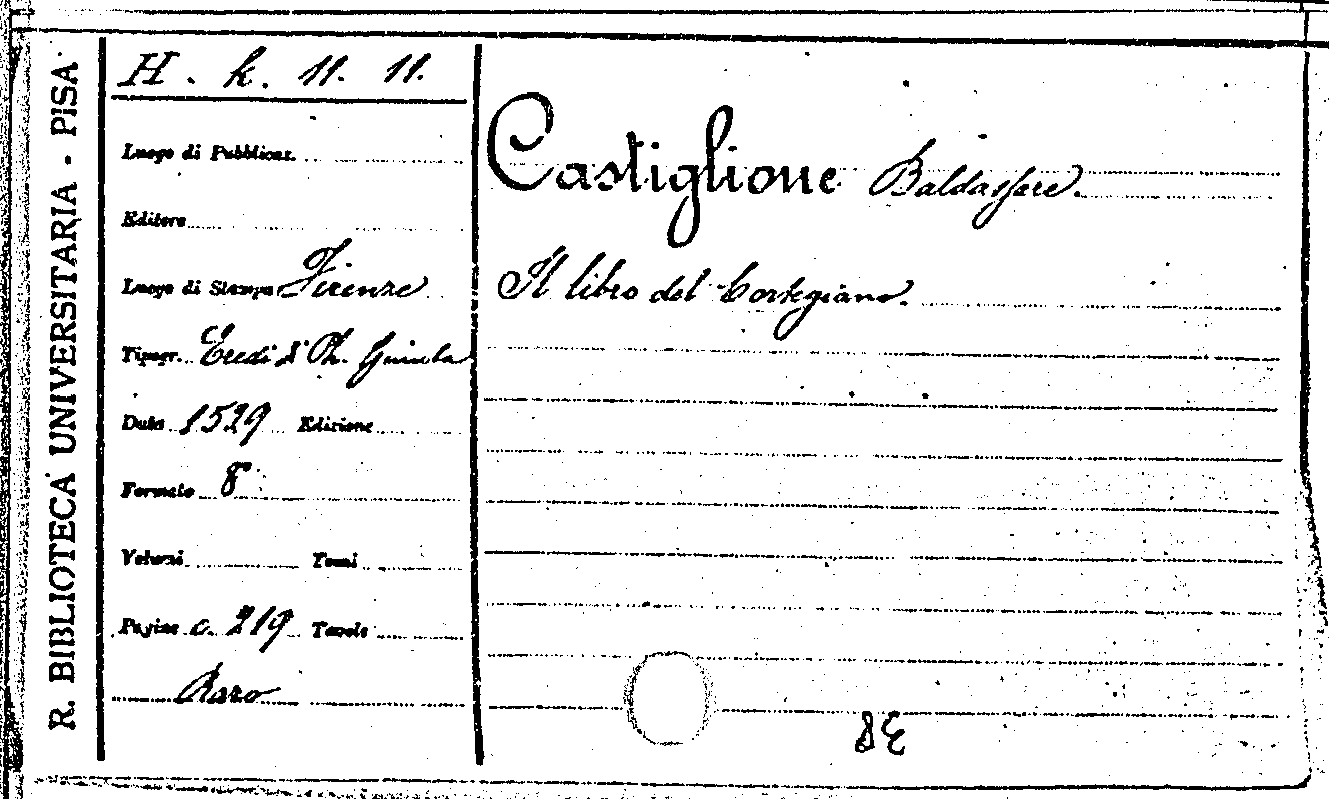 R. BIBLIOTECA UNIVERSITARIA - PISA
H. k. 11. 11.
Luogo di Pubblicaz.
Editore
Luogo di Stampa Firenze
Tipogr. Eredi d' Ph. Giunta
Data 1529 Edizione
Formato 8°
Volumi Tomi
Pagine c. 219 Tavole
Raro
Castiglione Baldassare.
Il libro del Cortegiano.